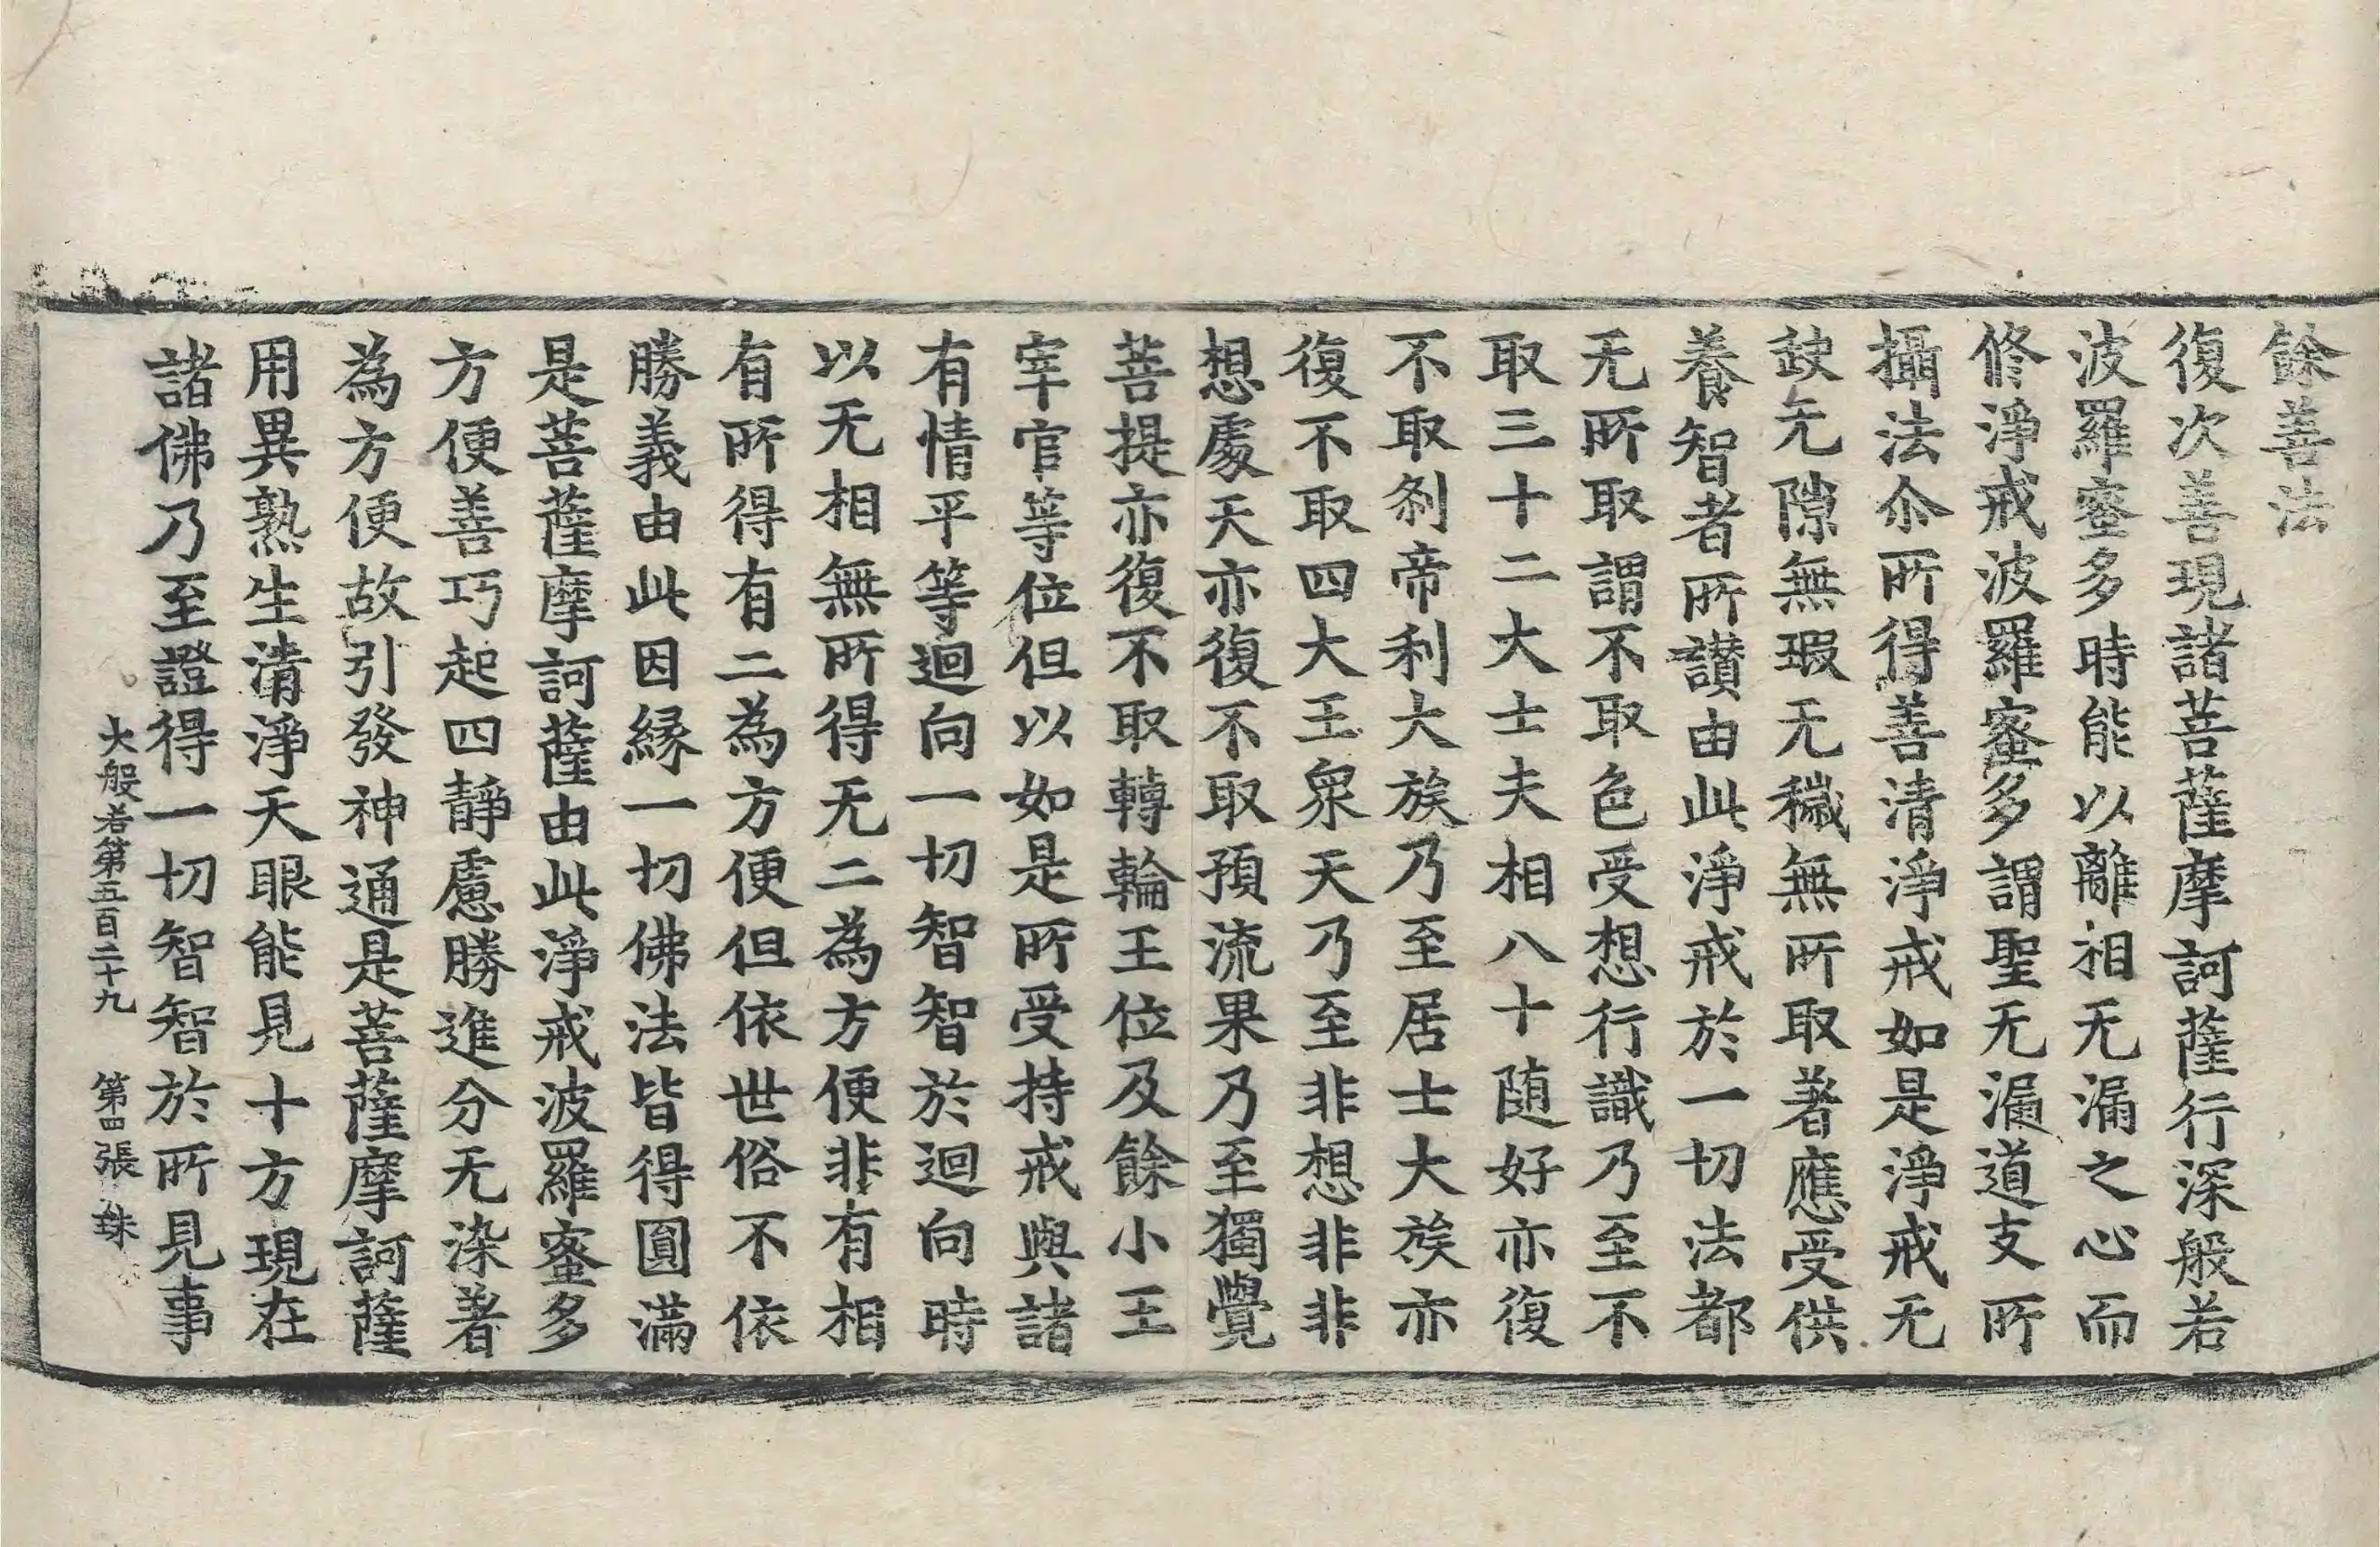 餘善法
復次善現諸菩薩摩訶薩行深般若
波羅蜜多時能以離相无漏之心而
修淨戒波羅蜜多謂聖无漏道支所
攝法尒所得善清淨戒如是淨戒无
缺无隙無瑕无穢無所取著應受供
養智者所讃由此淨戒於一切法都
无所取謂不取色受想行識乃至不
取三十二大士夫相八十随好亦復
不取刹帝利大族乃至居士大族亦
復不取四大王衆天乃至非想非非
想處天亦復不取預流果乃至獨覺
菩提亦復不取轉輪王位及餘小王
宰官等位但以如是所受持戒與諸
有情平等迴向一切智智於迴向時
以无相無所得无二為方便非有相
有所得有二為方便但依世俗不依
勝義由此因縁一切佛法皆得圓滿
是菩薩摩訶薩由此淨戒波羅蜜多
方便善巧起四靜慮勝進分无染著
為方便故引發神通是菩薩摩訶薩
用異熟生清淨天眼能見十方現在
諸佛乃至證得一切智智於所見事
大般若第五百二十九 第四張 珠